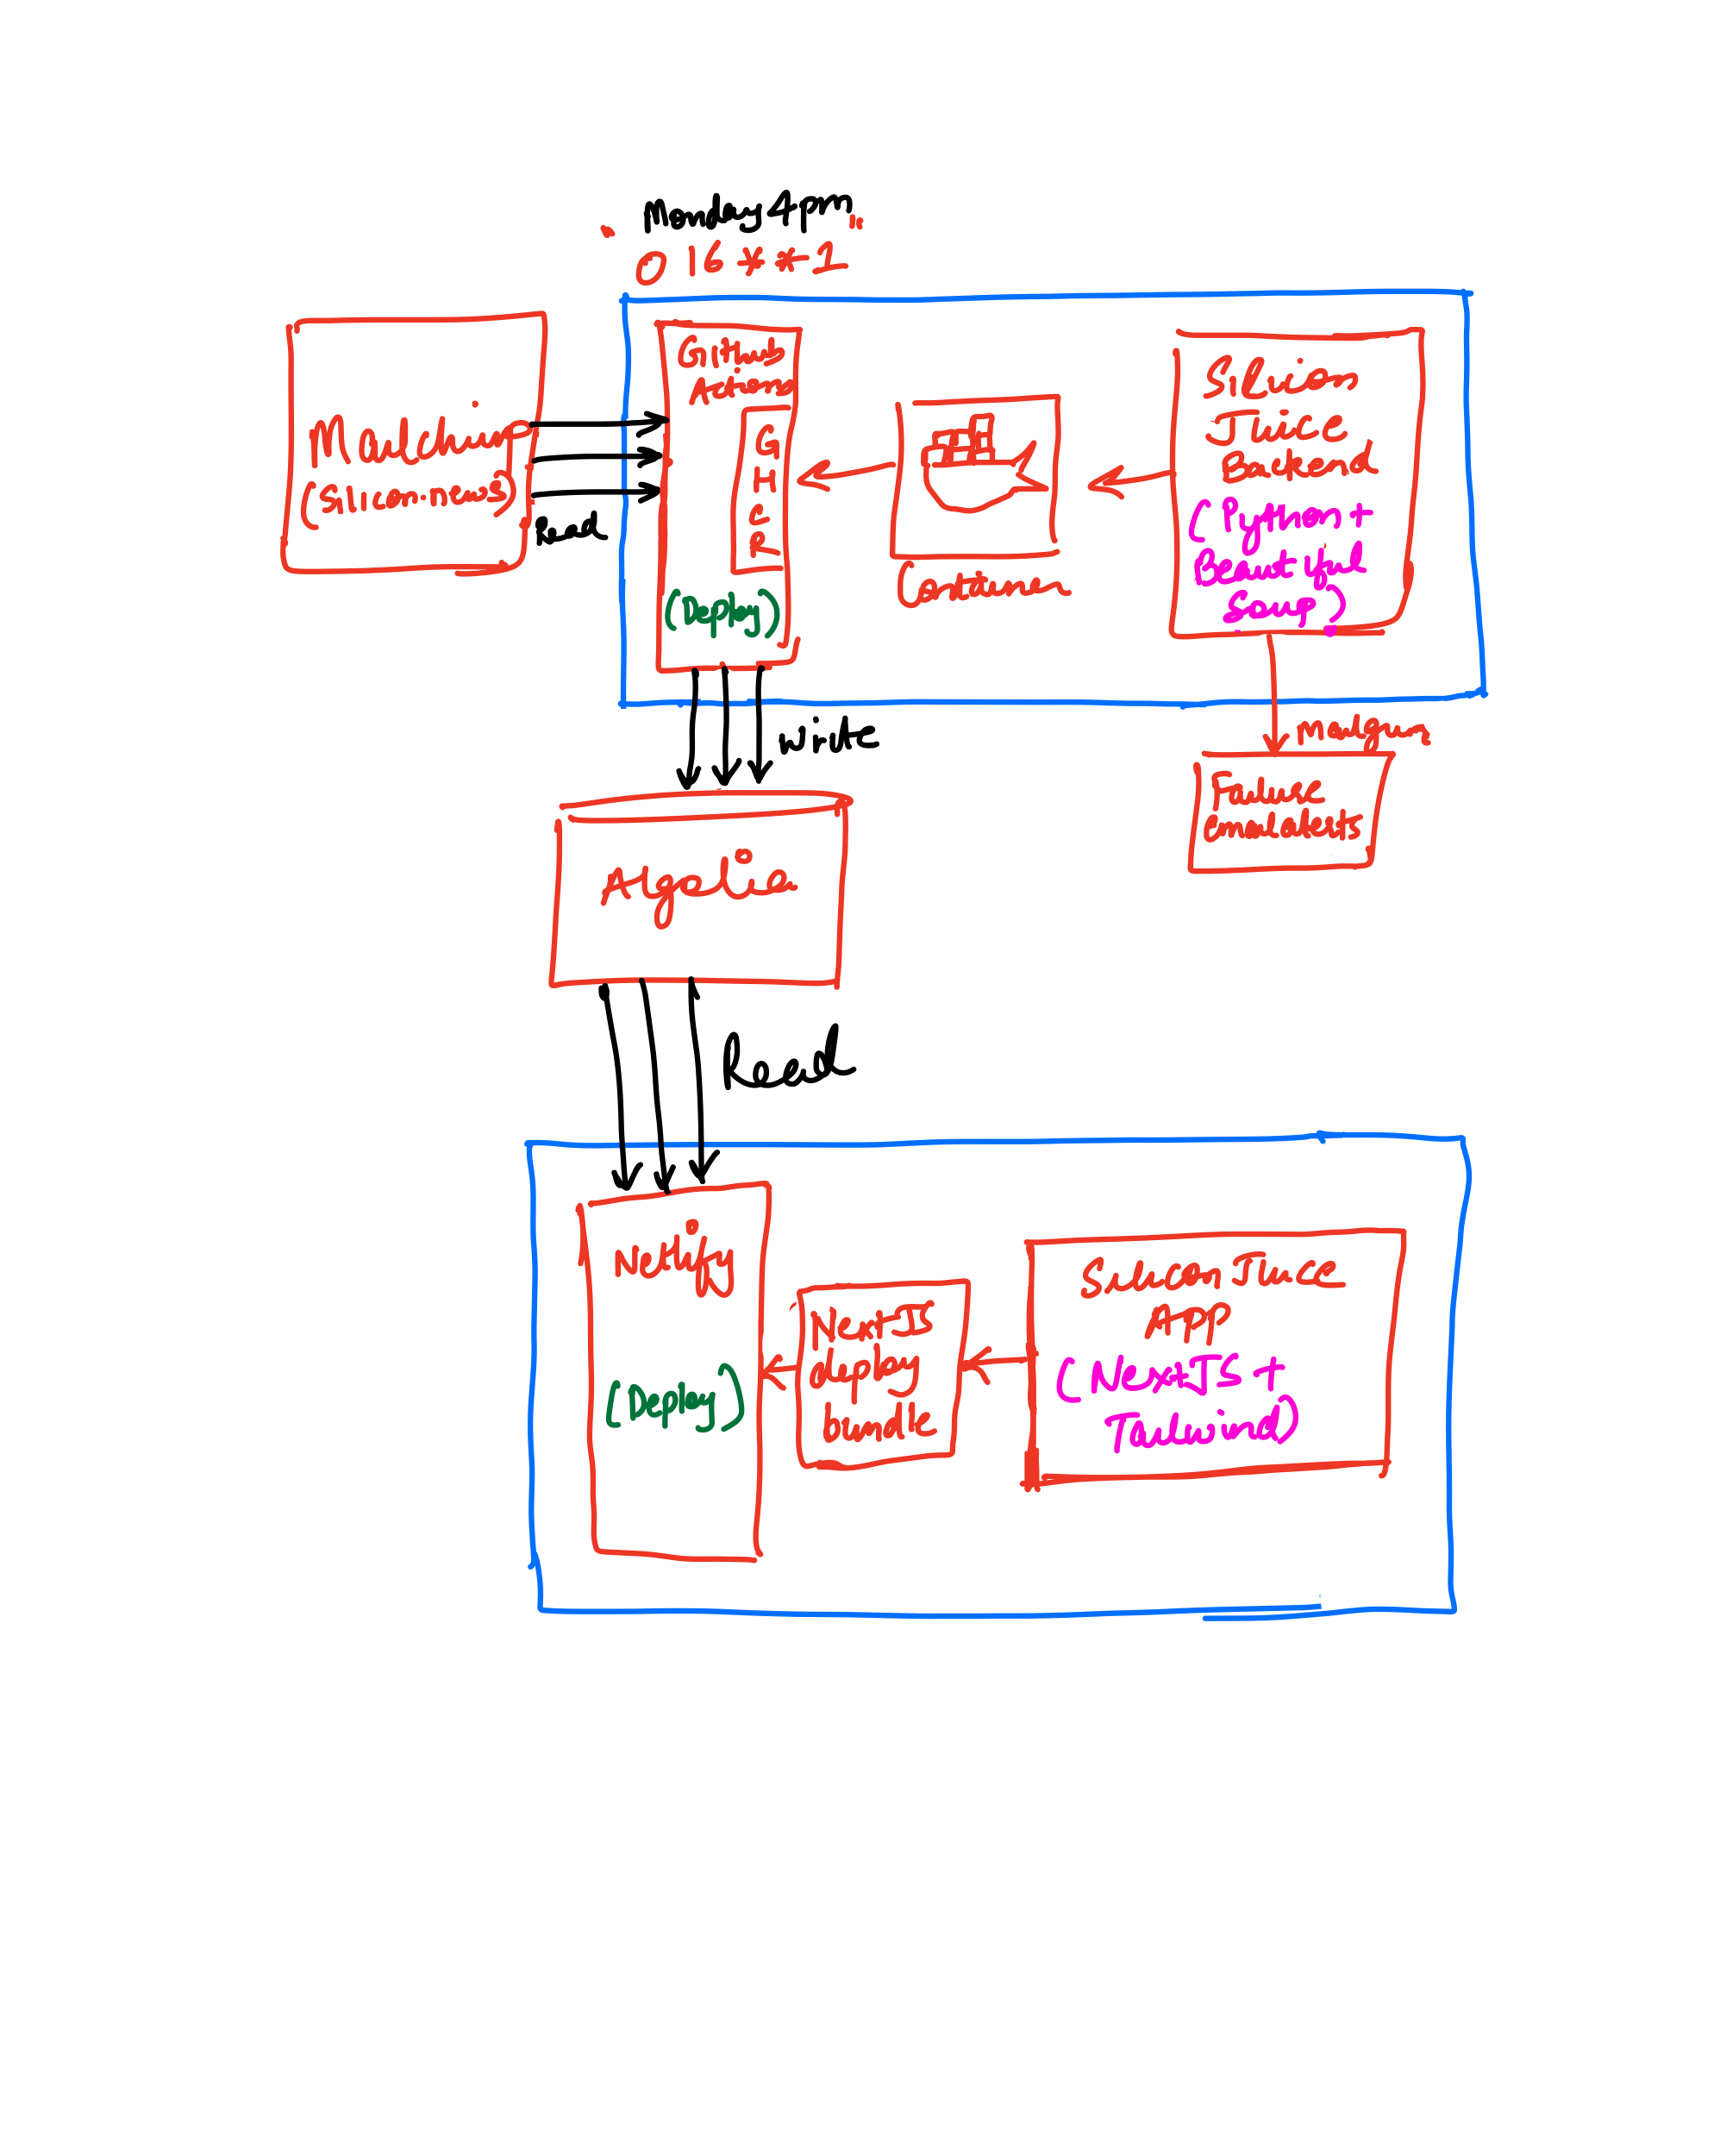 Monday 4pm
0 16 * * 1
Mailchimp
(silicon.news)
Read
Github
Actions
(Deploy)
Container
Silicon
Juice
Backend
(Python +
Beautiful
Soup)
write
mailgun
Failure
email alerts
Algolia
Read
Netlify
(Deploy)
NextJS
deploy
bundle
Silicon Juice
App
(NextJS +
Tailwind)